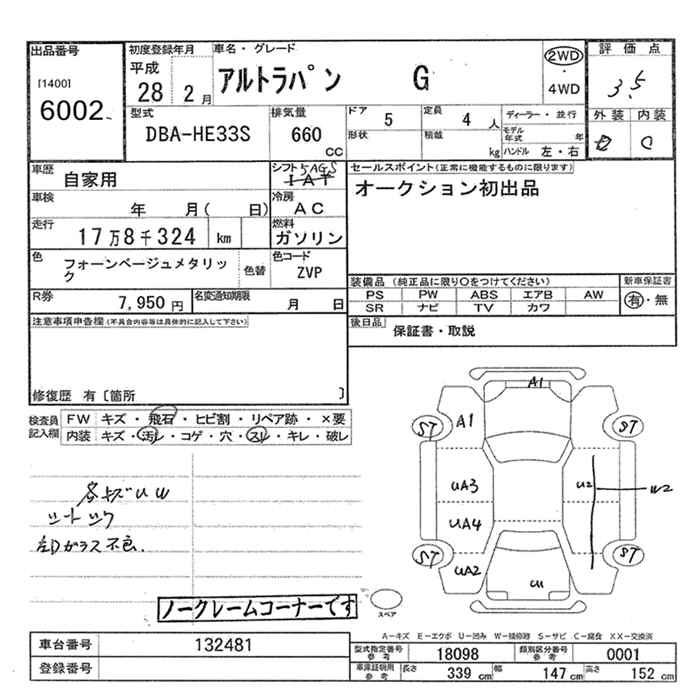 出品番号
[1400]
6002
初度登録年月
平成
28 2月
車名・グレード
アルトラパン G
2WD
・
4WD
評価点
3.5
外装 内装
C
型式
DBA-HE33S
排気量
660
CC
ドア
5
形状
定員
4 人
積載
kg
ディーラー・並行
モデル年式 年
ハンドル 左・右
車歴
自家用
シフト 5AGS
IAT
車検
年 月( 日)
冷房
AC
走行
17万8千324 km
燃料
ガソリン
色
フォーンベージュメタリック
色替
色コード
ZVP
R券
7,950 円
名変通知期限
月 日
セールスポイント(正常に機能するものに限ります)
オークション初出品
装備品 (純正品に限り○をつけてください)
PS PW ABS エアB AW
SR ナビ TV カワ
新車保証書
有・無
後日品
保証書・取説
注意事項申告欄(不具合内容等は具体的に記入して下さい)
修復歴 有 [箇所 ]
検査員
記入欄
FW キズ・飛石・ヒビ割・リペア跡・×要
内装 キズ・汚レ・コゲ・穴・スレ・キレ・破レ
シートシワ
ガラス不良.
ノークレームコーナーです
A1
A1
ST
ST
UA3
U2
W2
UA4
ST
ST
UA2
U1
スペア
A-キズ E-エクボ U-凹み W-補修跡 S-サビ C-腐食 XX-交換済
車台番号
132481
登録番号
型式指定番号
参考
18098
類別区分番号
参考
0001
車庫証明用
参考
長さ 339 cm
幅 147 cm
高さ 152 cm